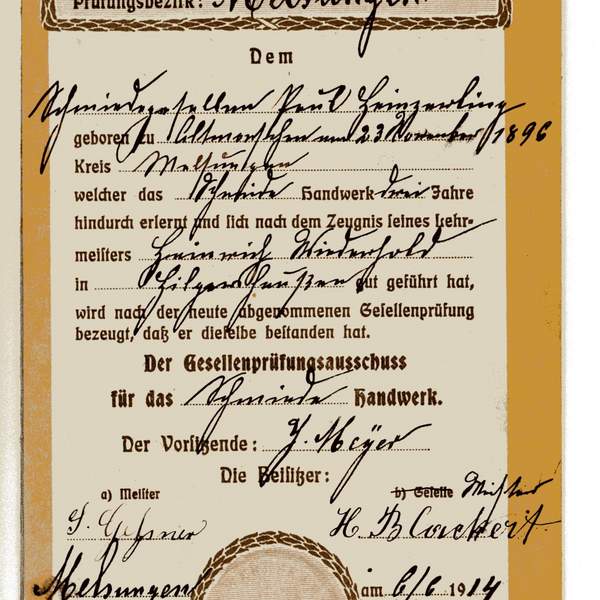 Prüfungsbezirk: Melsungen
Dem
Schmiedegesellen Paul Heinzerling
geboren zu Altmorschen am 23 November 1896
Kreis Melsungen
welcher das Schmiede Handwerk drei Jahre
hindurch erlernt und sich nach dem Zeugnis seines Lehr-
meisters Heinrich Wiederhold
in Hilgershausen gut geführt hat,
wird nach der heute abgenommenen Gesellenprüfung
bezeugt, daß er dieselbe bestanden hat.
Der Gesellenprüfungsausschuss
für das Schmiede Handwerk.
Der Vorsitzende: J. Meÿer
Die Beisitzer:
a) Meister b) Geselle Meister
Gessner H Blackert
Melsungen am 6/6 1914